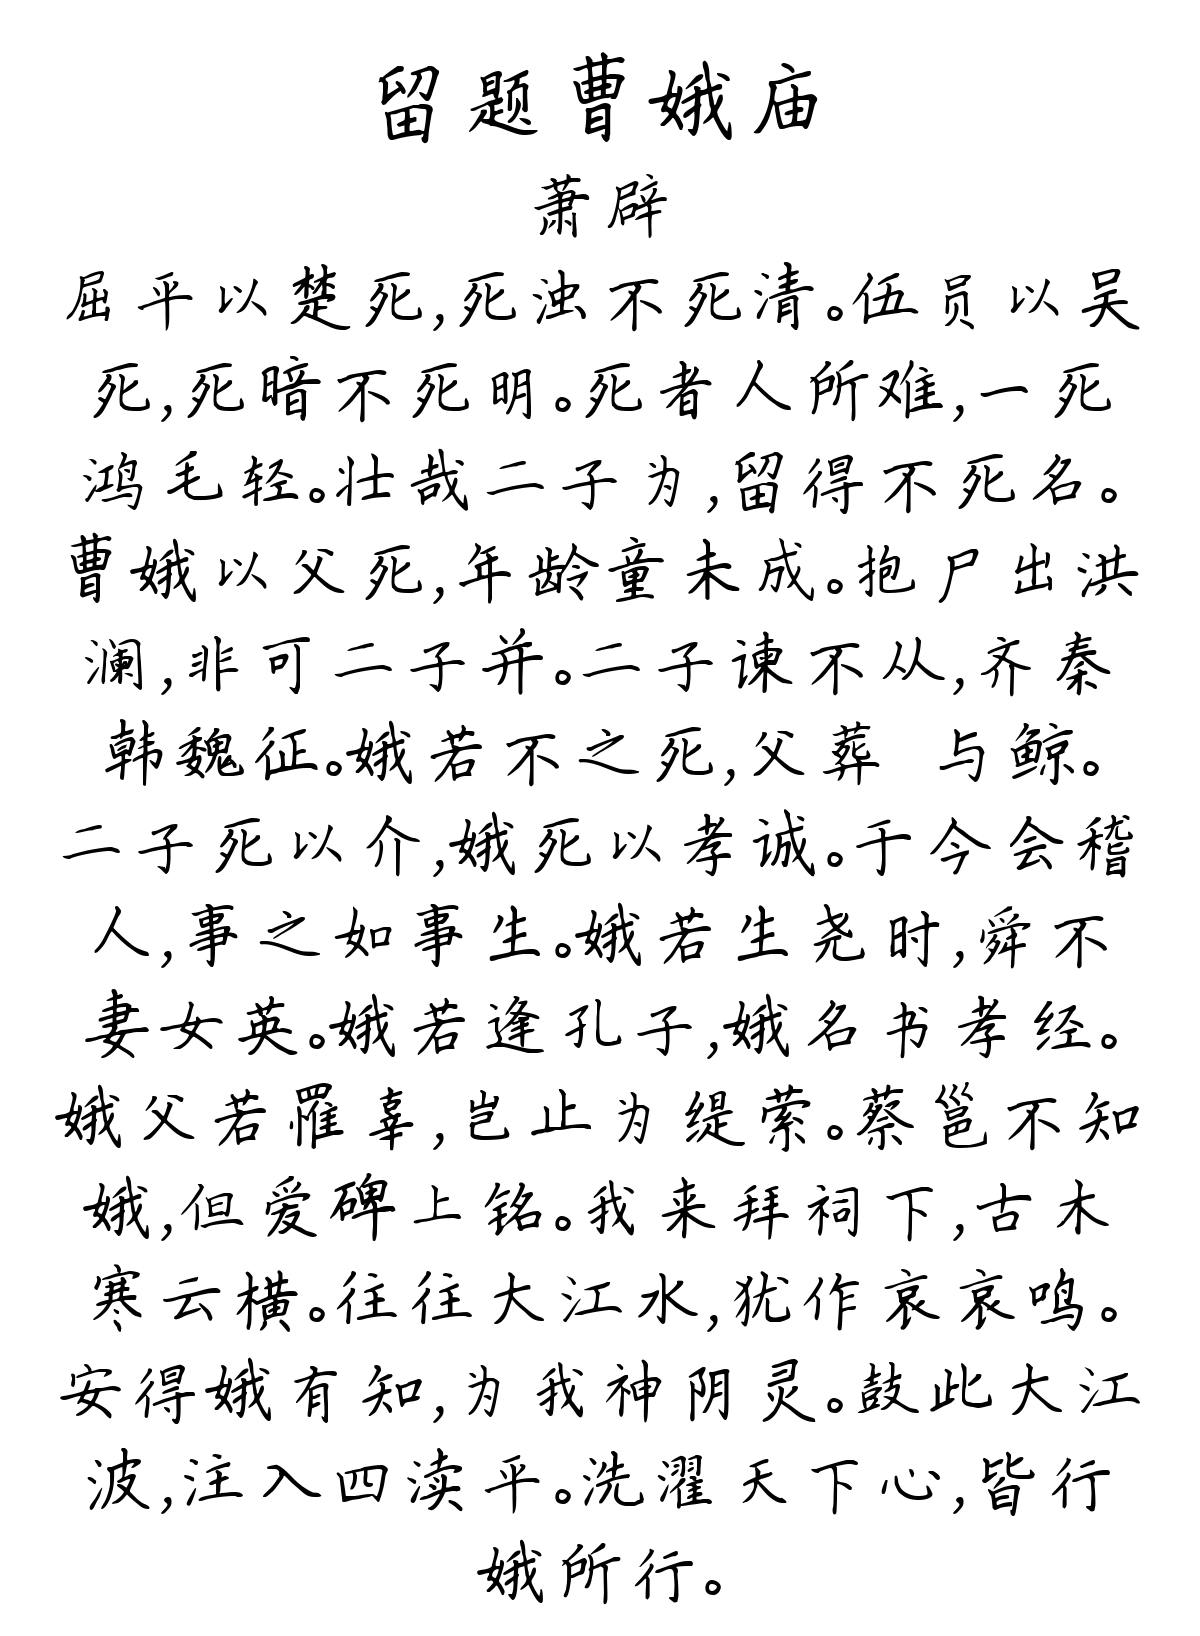 留题曹娥庙
萧辟
屈平以楚死,死浊不死清。伍员以吴
死,死暗不死明。死者人所难,一死
鸿毛轻。壮哉二子为,留得不死名。
曹娥以父死,年龄童未成。抱尸出洪
澜,非可二子并。二子谏不从,齐秦
韩魏征。娥若不之死,父葬 与鲸。
二子死以介,娥死以孝诚。于今会稽
人,事之如事生。娥若生尧时,舜不
妻女英。娥若逢孔子,娥名书孝经。
娥父若罹辜,岂止为缇萦。蔡邕不知
娥,但爱碑上铭。我来拜祠下,古木
寒云横。往往大江水,犹作哀哀鸣。
安得娥有知,为我神阴灵。鼓此大江
波,注入四渎平。洗濯天下心,皆行
娥所行。